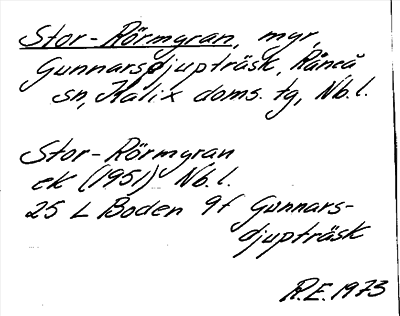 Stor-Rörmyran, myr,
Gunnarsdjupträsk, Råneå
sn, Kalix doms. tg, Nb.l.
Stor-Rörmyran
ek (1951) Nb.l.
25 L Boden 9f Gunnars-
djupträsk
R.E. 1973